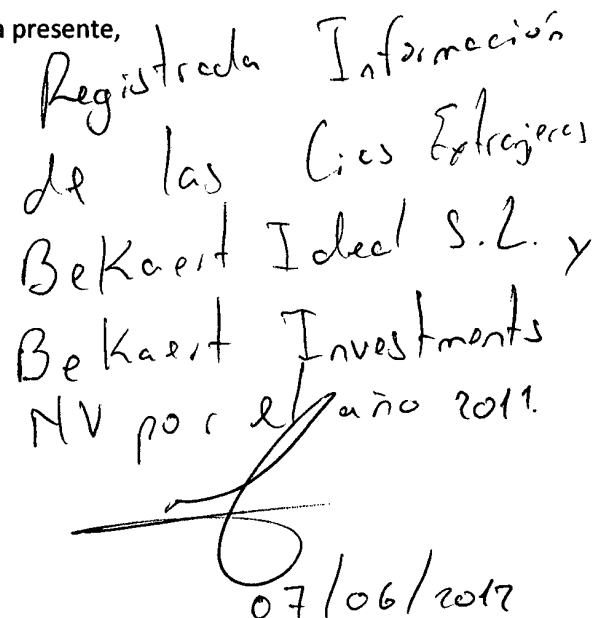 a presente,
Registrada Información
de las Cías Extranjeras
Bekaert Ideal S.L. y
Bekaert Investments
NV por el año 2011.
07/06/2012